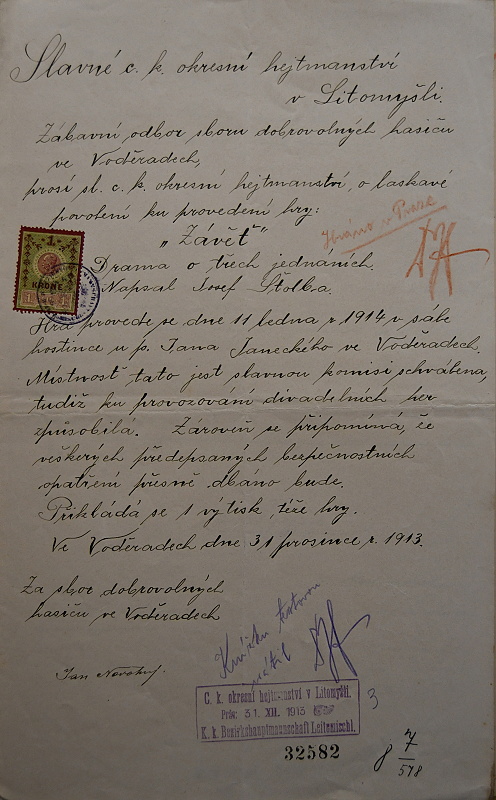 Slavné c. k. okresní hejtmanství
v Litomyšli.
Zábavní odbor sboru dobrovolných hasičů
ve Voděradech,
prosí sl. c. k. okresní hejtmanství, o laskavé
povolení ku provedení hry:
„Závěť"
Hráno v Praze
Drama o třech jednáních.
Napsal Josef Štolba.
1
KRONE
Hra provede se dne 11 ledna r. 1914 v sále
hostince u p. Jana Janeckého ve Voděradech.
Místnosť tato jest slavnou komisí schválena,
tudiž ku provozování divadelních her
způsobilá. Zároveň se připomíná, že
veškerých předepsaných bezpečnostních
opatření přesně dbáno bude.
Přikládá se 1 výtisk téže hry.
Ve Voděradech dne 31 prosince r. 1913.
Za sbor dobrovolných
hasičů ve Voděradech
Jan
C. k. okresní hejtmanství v Litomyšli.
Präs: 31. XII. 1913
K. k. Bezirkshauptmannschaft Leitomischl.
3
32582
8 7/578